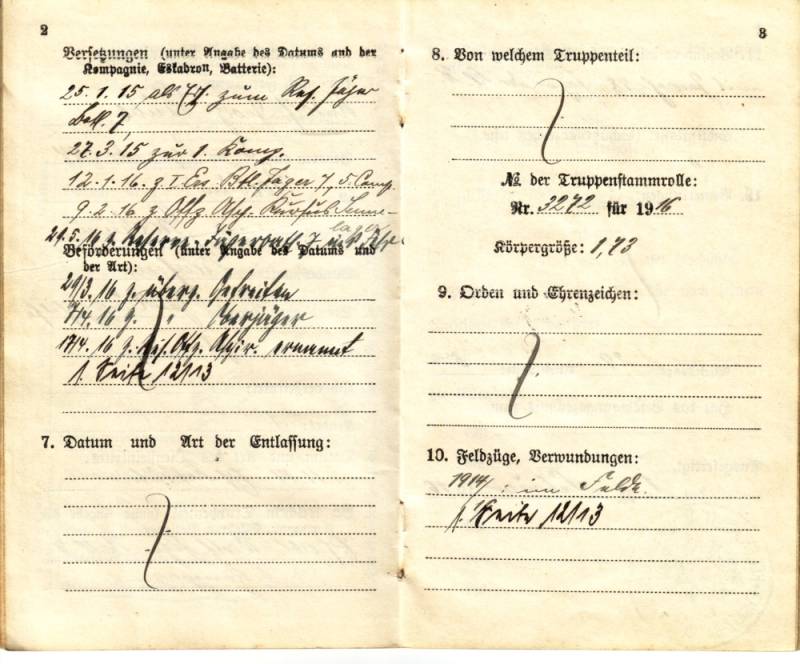 2
Versetzungen (unter Angabe des Datums und der
Kompagnie, Eskadron, Batterie):
25. 1. 15 als zum Res. Jäger
Batl. 7,
27. 3. 15 zur 1. Komp.
12. 1. 16. z. I Ers. Btl. Jäger 7, 5. Comp.
9. 2. 16 z. Offz. Asp. Kursus Senne-
lager
29. 5. 16 z. Reserve-
Beförderungen (unter Angabe des Datums und
der Art):
29/3. 16 z. überz. Gefreiten
7/4. 16 z. " Oberjäger
17/4. 16 z. Res. Offz. Aspir. ernannt
s. Seite 12/13
7. Datum und Art der Entlassung:
3
8. Von welchem Truppenteil:
№ der Truppenstammrolle:
Nr. 3272 für 1916
Körpergröße: 1,73
9. Orden und Ehrenzeichen:
10. Feldzüge, Verwundungen:
1914/ : im Felde.
s. Seite 12/13